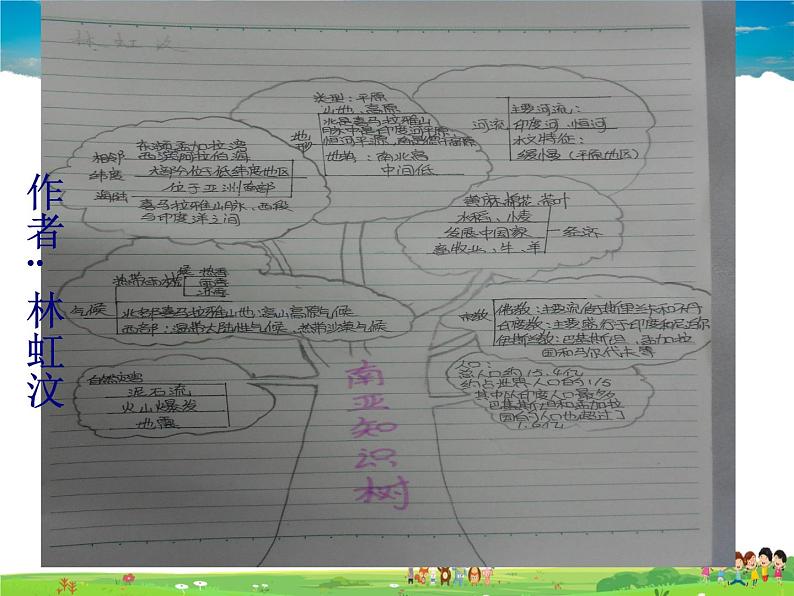 林虹汶
类型：平原
山地、高原
地形
北是喜马拉雅山
脉,中是印度河平原
恒河平原,南是德干高原
地势：南北高
中间低
河流
主要河流：
印度河、恒河
水文特征：
缓慢(平原地区)
东濒孟加拉湾
西濒阿拉伯海
相邻
纬度
大部分位于低纬度地区
海陆
位于亚洲南部
喜马拉雅山脉、西段
与印度洋之间
黄麻、棉花、茶叶
水稻、小麦
发展中国家
畜牧业、牛、羊
经济
气候
热带季风气候
热季
雨季
凉季
北部喜马拉雅山地:高山高原气候
西部：温带大陆性气候、热带沙漠气候
宗教
佛教：主要流传于斯里兰卡和不丹
印度教：主要盛行于印度和尼泊尔
伊斯兰教：巴基斯坦、孟加拉
国和马尔代夫等
自然灾害
泥石流
火山爆发
地震
人口：
总人口约15.4亿
约占世界人口的1/5
其中以印度人口最多
巴基斯坦和孟加拉
国的人口也超过了
1.6亿
南亚知识树
作者：林虹汶